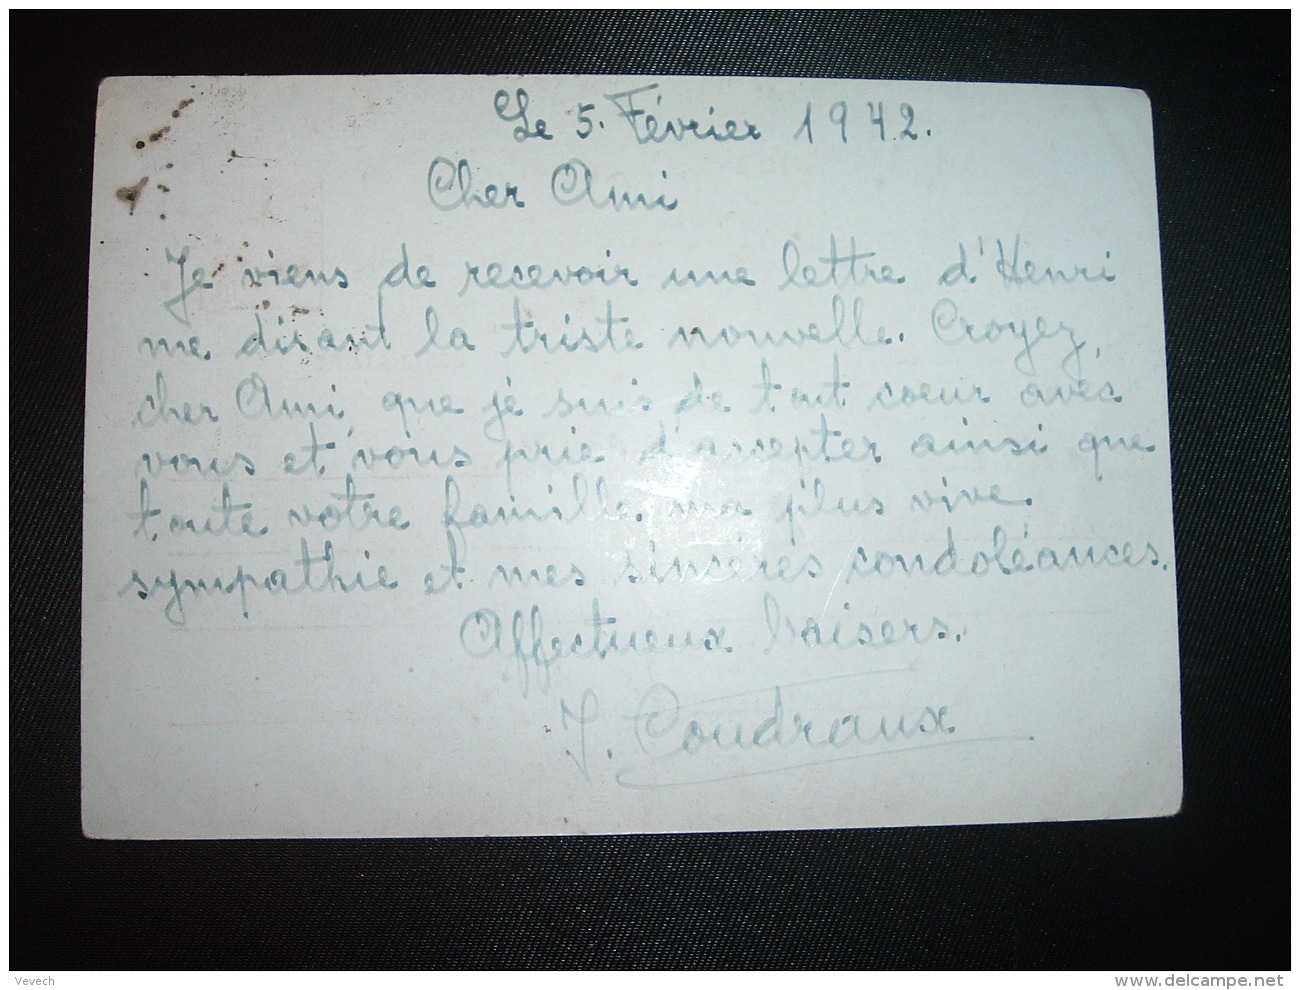 Le 5. Février 1942.
Cher Ami
Je viens de recevoir une lettre d'Henri
me disant la triste nouvelle. Croyez,
cher Ami, que je suis de tout coeur avec
vous et vous prie d'accepter ainsi que
toute votre famille, ma plus vive
sympathie et mes sincères condoléances.
Affectueux baisers.
J. Coudraux
Vevech
www.delcampe.net